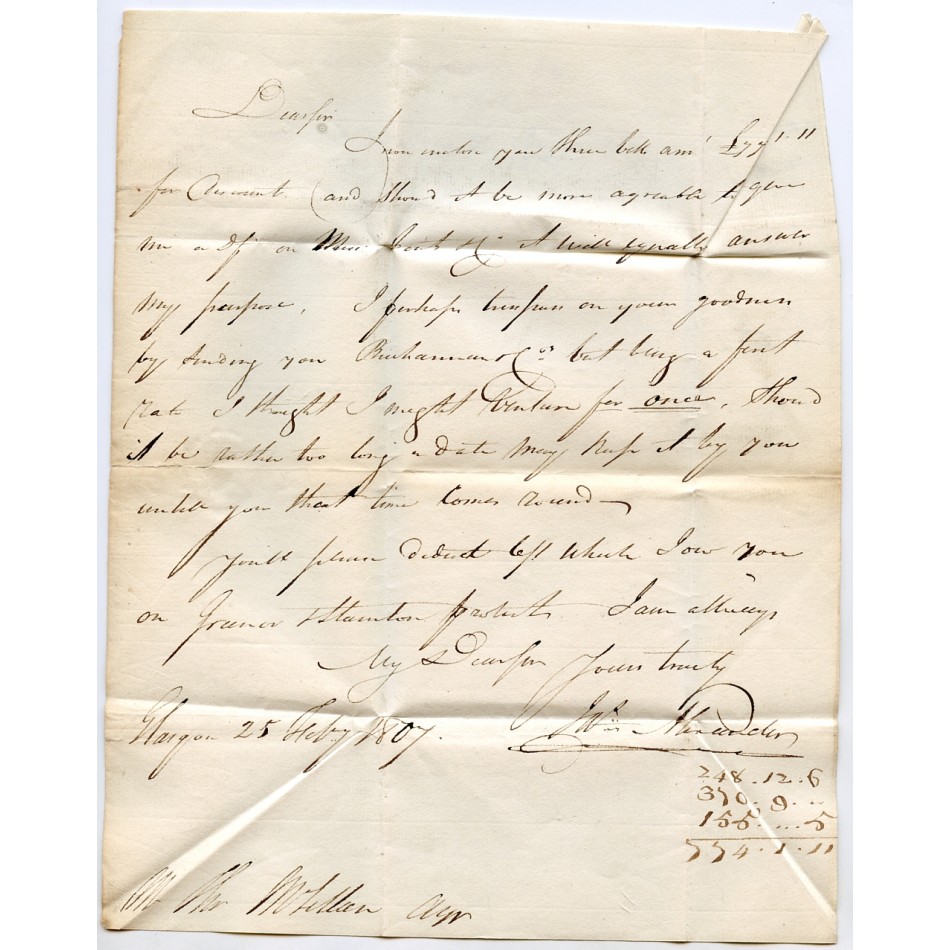 Dear Sir
I now enclose you three bills amt £774. 1. 11
for Discount (and) Should it be more agreable to give
me a Dft on it will equally answer
my purpose. I perhaps trespass on your goodness
by sending you Buchannan & Cos but being a first
rate I thought I might Venture for once, Should
it be rather too long a date may keep it by you
untill you that time Comes round
Youll please deduct which I owe you
on Stainton protests. I am allways
My Dear Sir Yours truely
Alexander
Glasgow 25 Feby 1807.
248.12.6
370.9...
155....5
774.1.11
Mr Thos McLellan Ayr